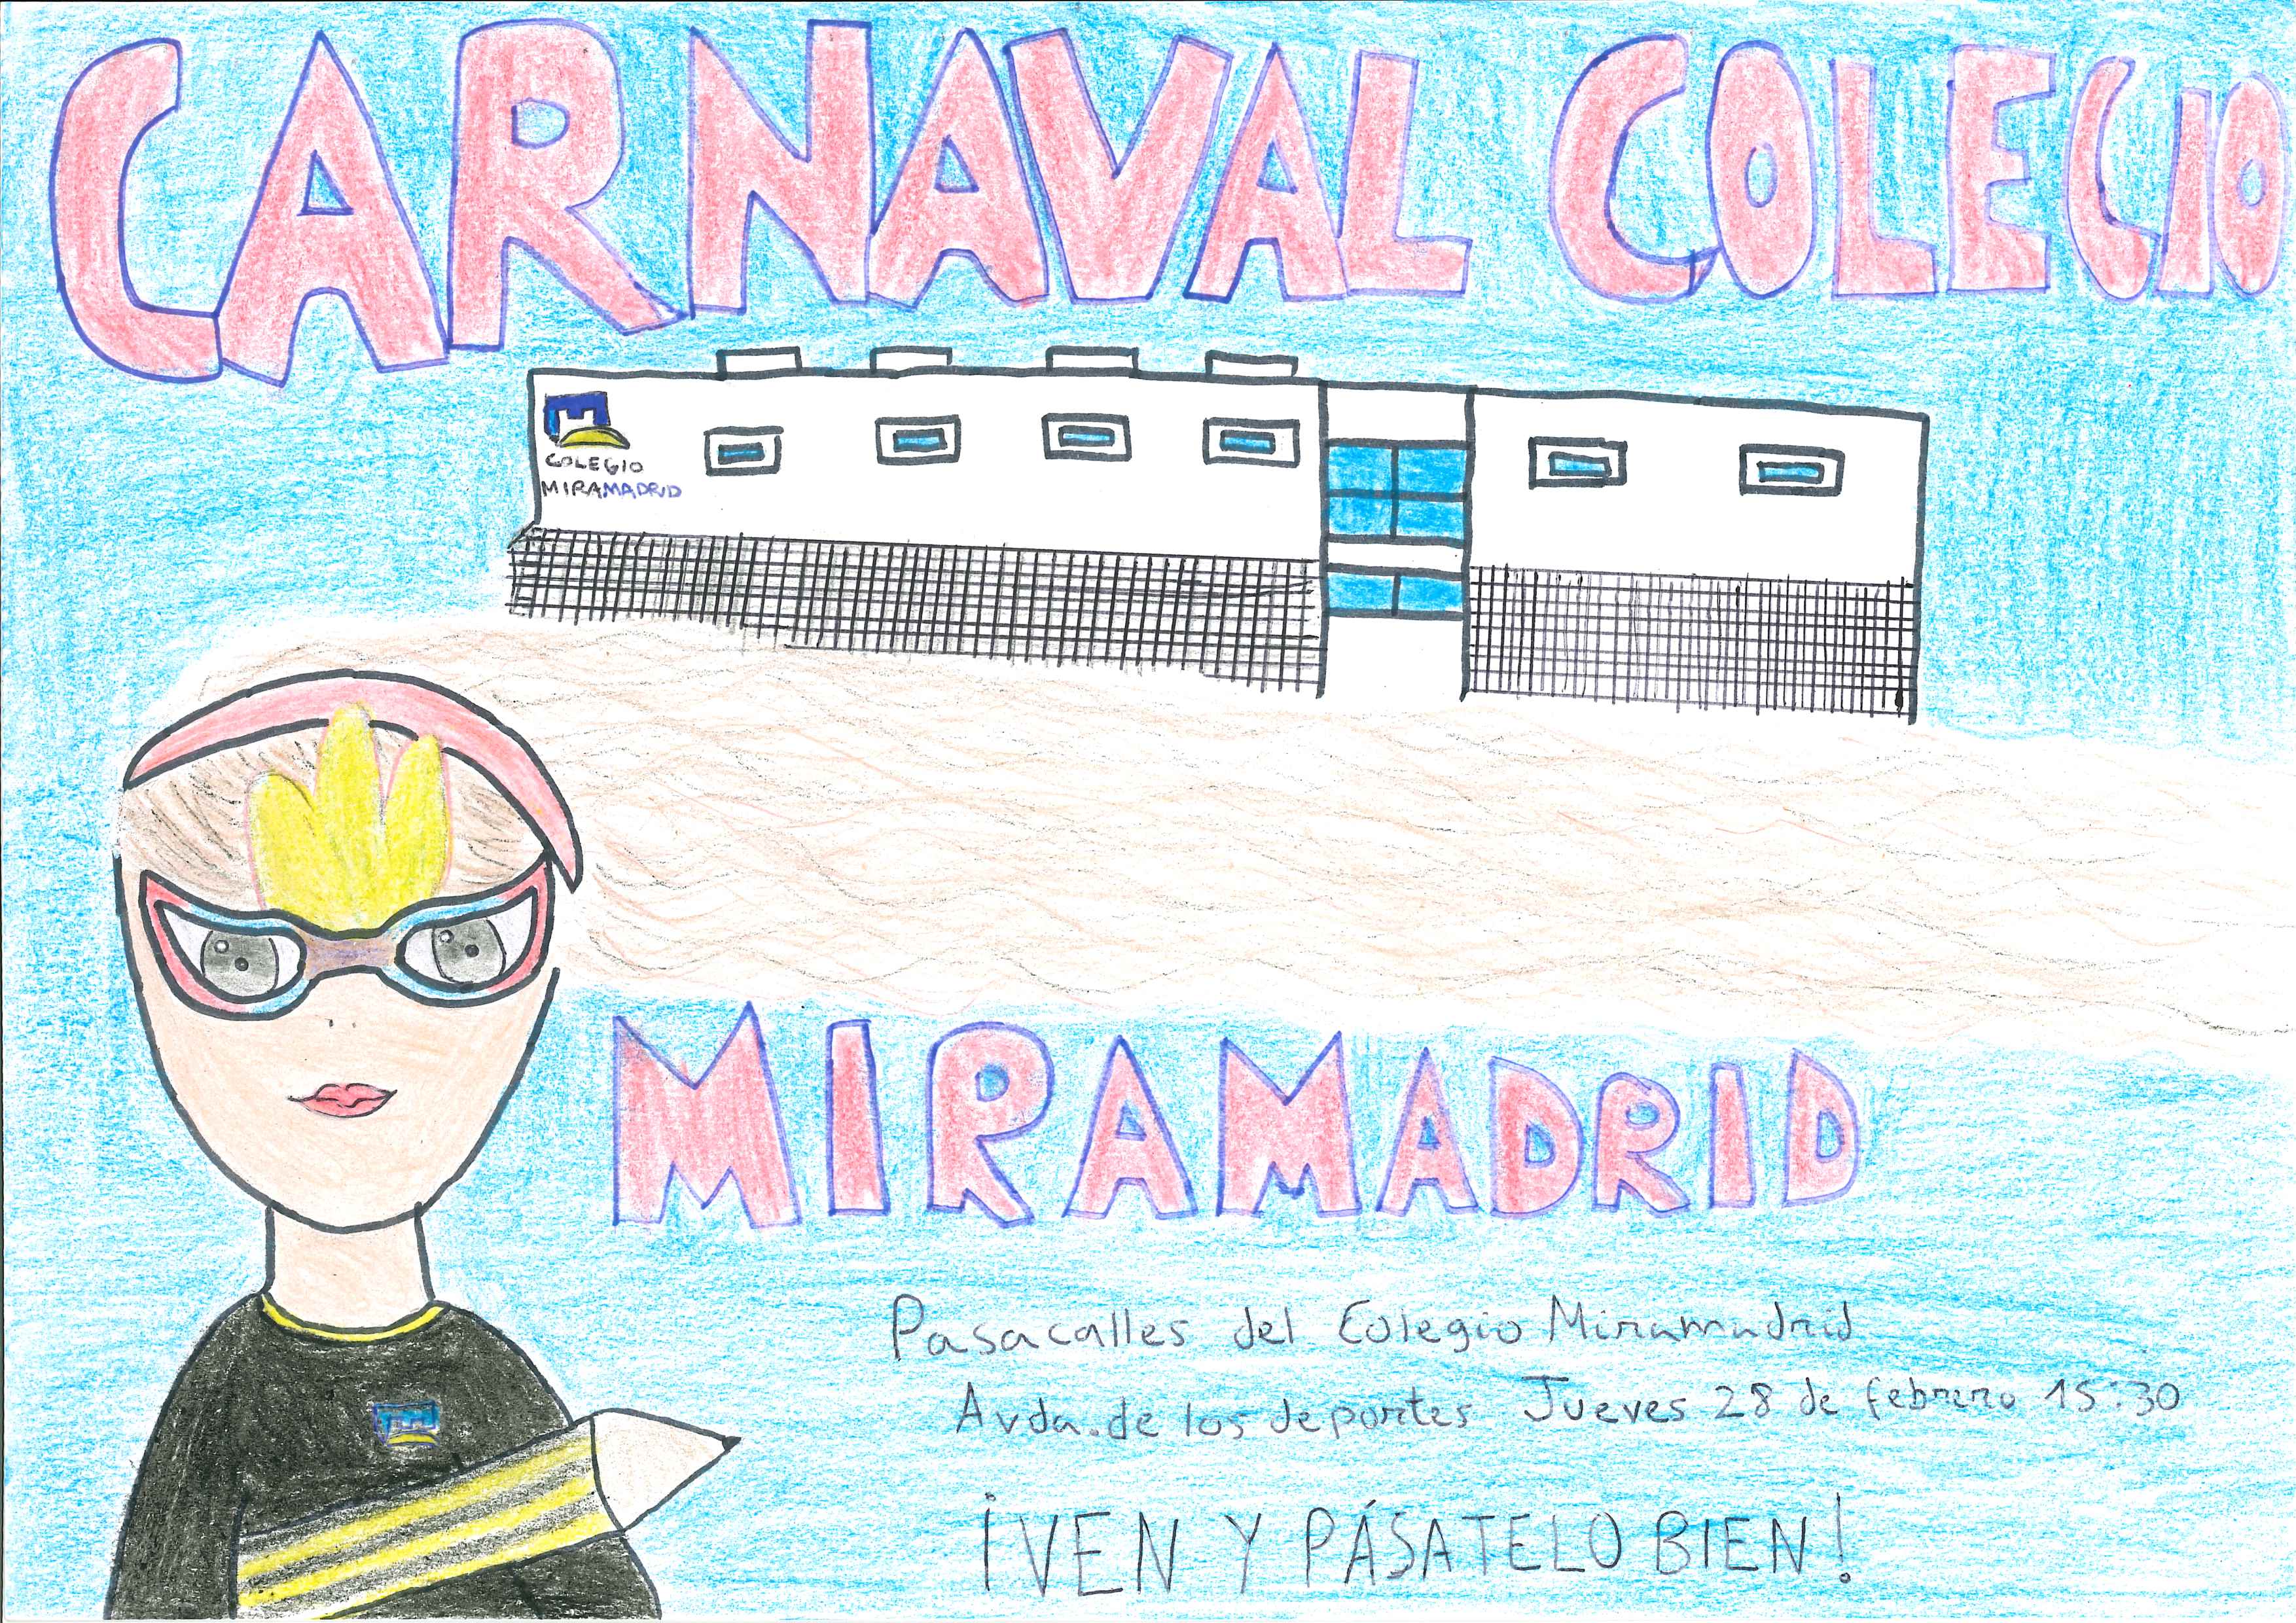 CARNAVAL COLEGIO
COLEGIO
MIRAMADRID
MIRAMADRID
Pasacalles del Colegio Miramadrid
Avda. de los deportes Jueves 28 de febrero 15:30
¡VEN Y PÁSATELO BIEN!